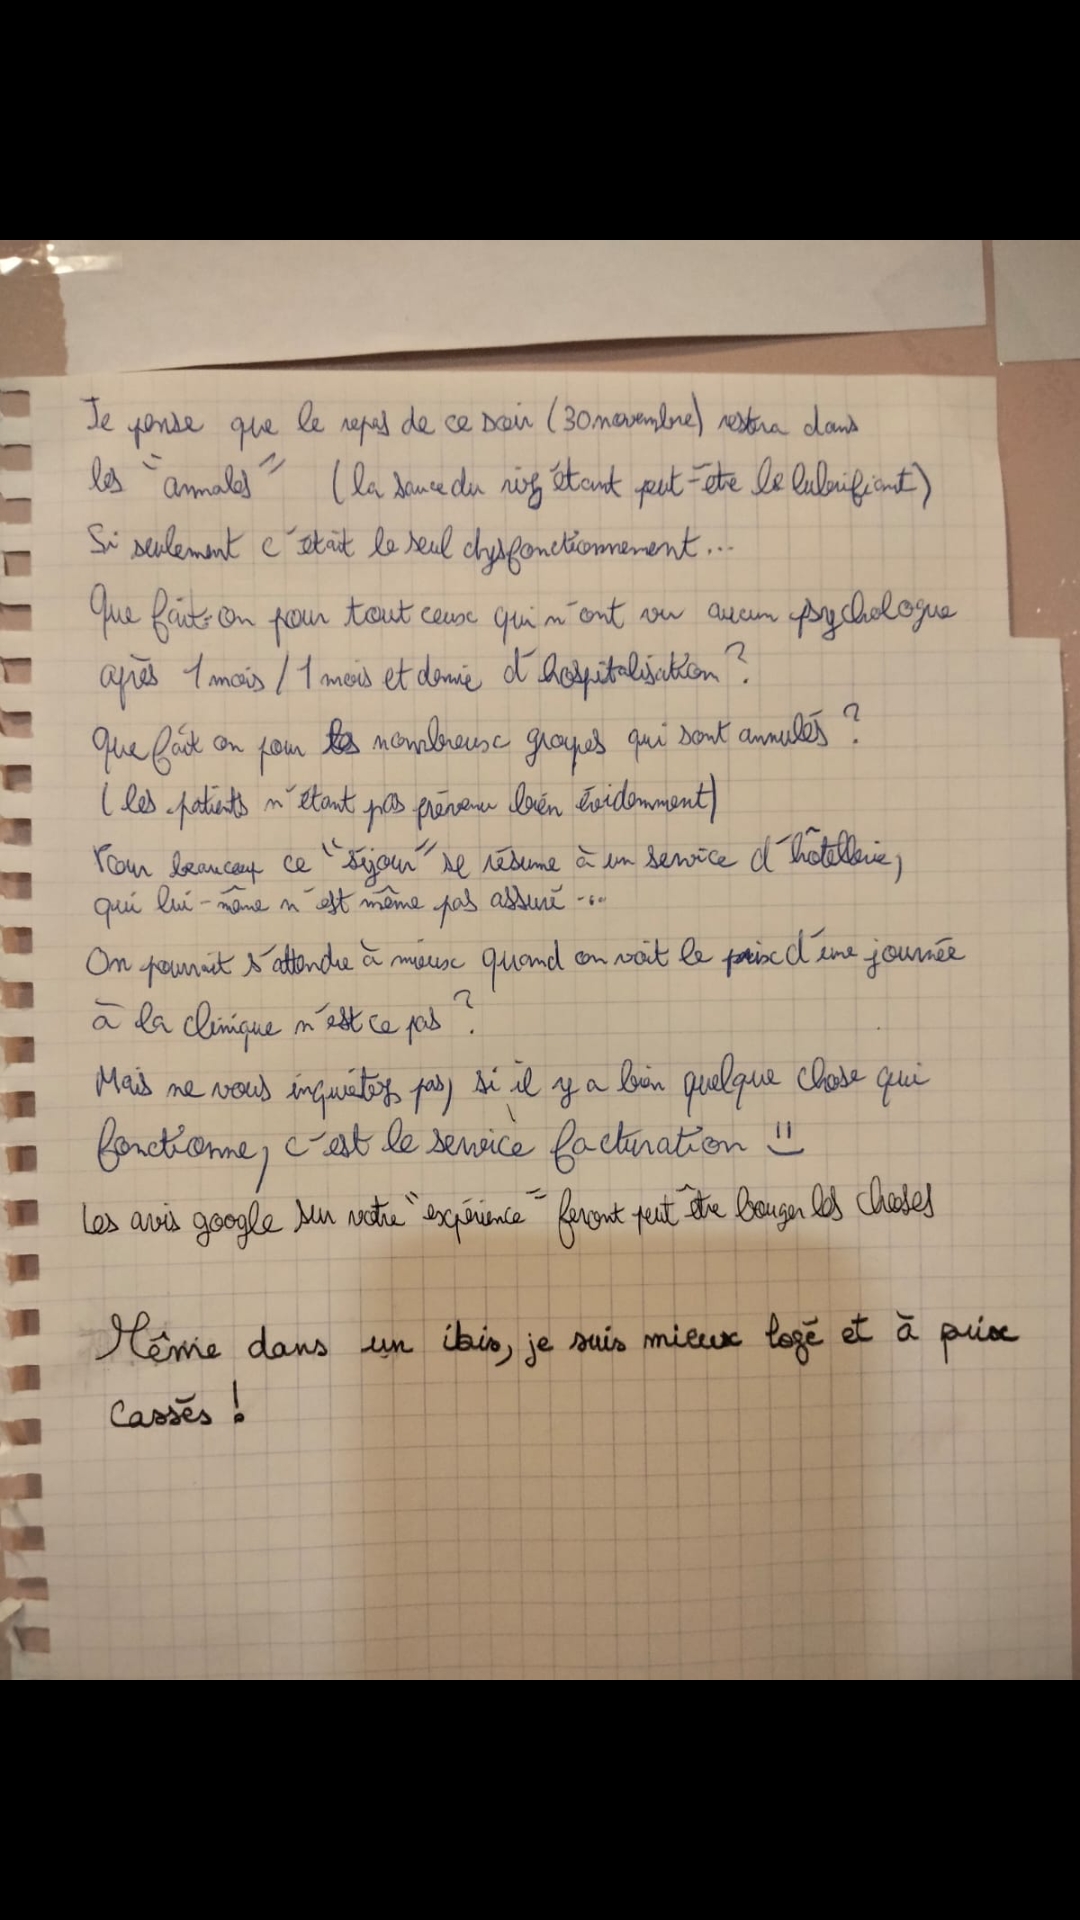 Je pense que le repas de ce soir (30 novembre) restera dans
les "annales" (la sauce du riz étant peut-être le lubrifiant)
Si seulement c'était le seul dysfonctionnement...
Que fait-on pour tout ceux qui n'ont vu aucun psychologue
après 1 mois / 1 mois et demie d'hospitalisation ?
Que fait on pour les nombreux groupes qui sont annulés ?
(les patients n'étant pas prévenu bien évidemment)
Pour beaucoup ce "séjour" se résume à un service d'hôtellerie,
qui lui-même n'est même pas assuré ...
On pourrait s'attendre à mieux quand on voit le prix d'une journée
à la clinique n'est ce pas ?
Mais ne vous inquiétez pas, si il y a bien quelque chose qui
fonctionne, c'est le service facturation =)
Les avis google sur votre "expérience" feront peut être bouger les choses
Même dans un ibis, je suis mieux logé et à prix
cassés !